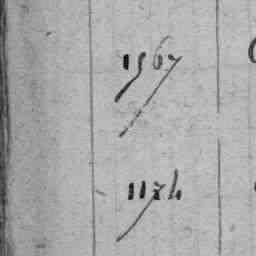 1567
1174